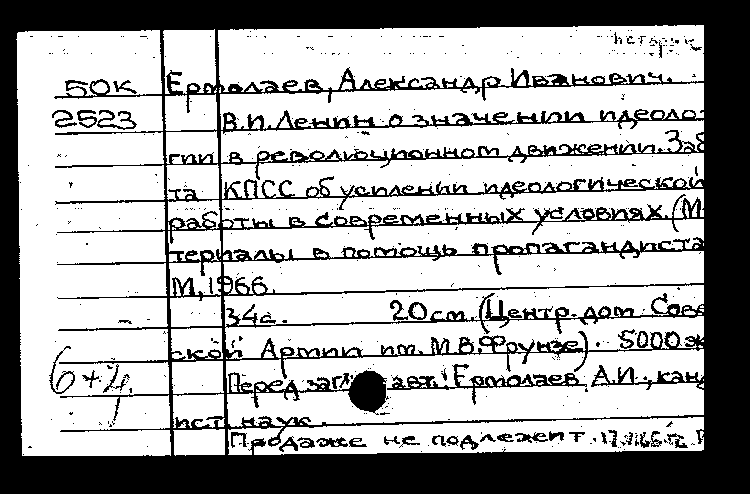 50К Ермолаев, Александр Иванович.
2523 В.И. Ленин о значении идеоло-
гии в революционном движении. Заб
та КПСС об усилении идеологической
работы в современных условиях. (М
териалы в помощь пропагандиста
М, 1966.
34с. 20см. (Центр. дом Сове
ской Армии им. М.В. Фрунзе). 5000 эк
6+4 Перед загл. авт.: Ермолаев А.И., канд
ист. наук.
Продаже не подлежит.